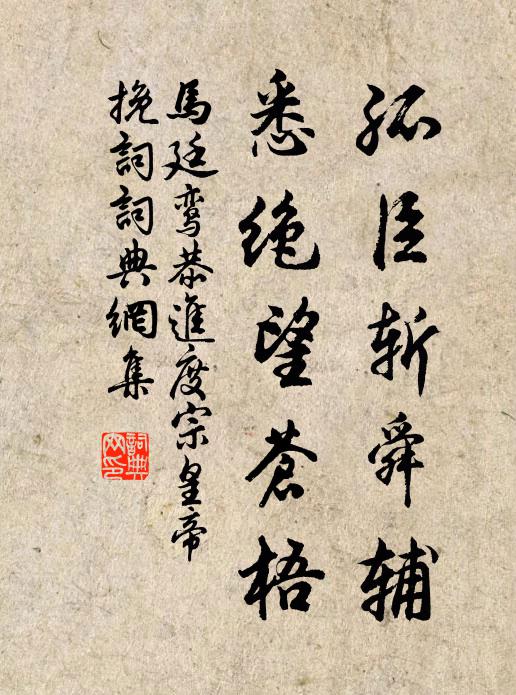 孤臣斩舜辅
悉绝望苍梧
馬廷鸾恭進度宗皇帝
挽詞詞典網集
詞典网印